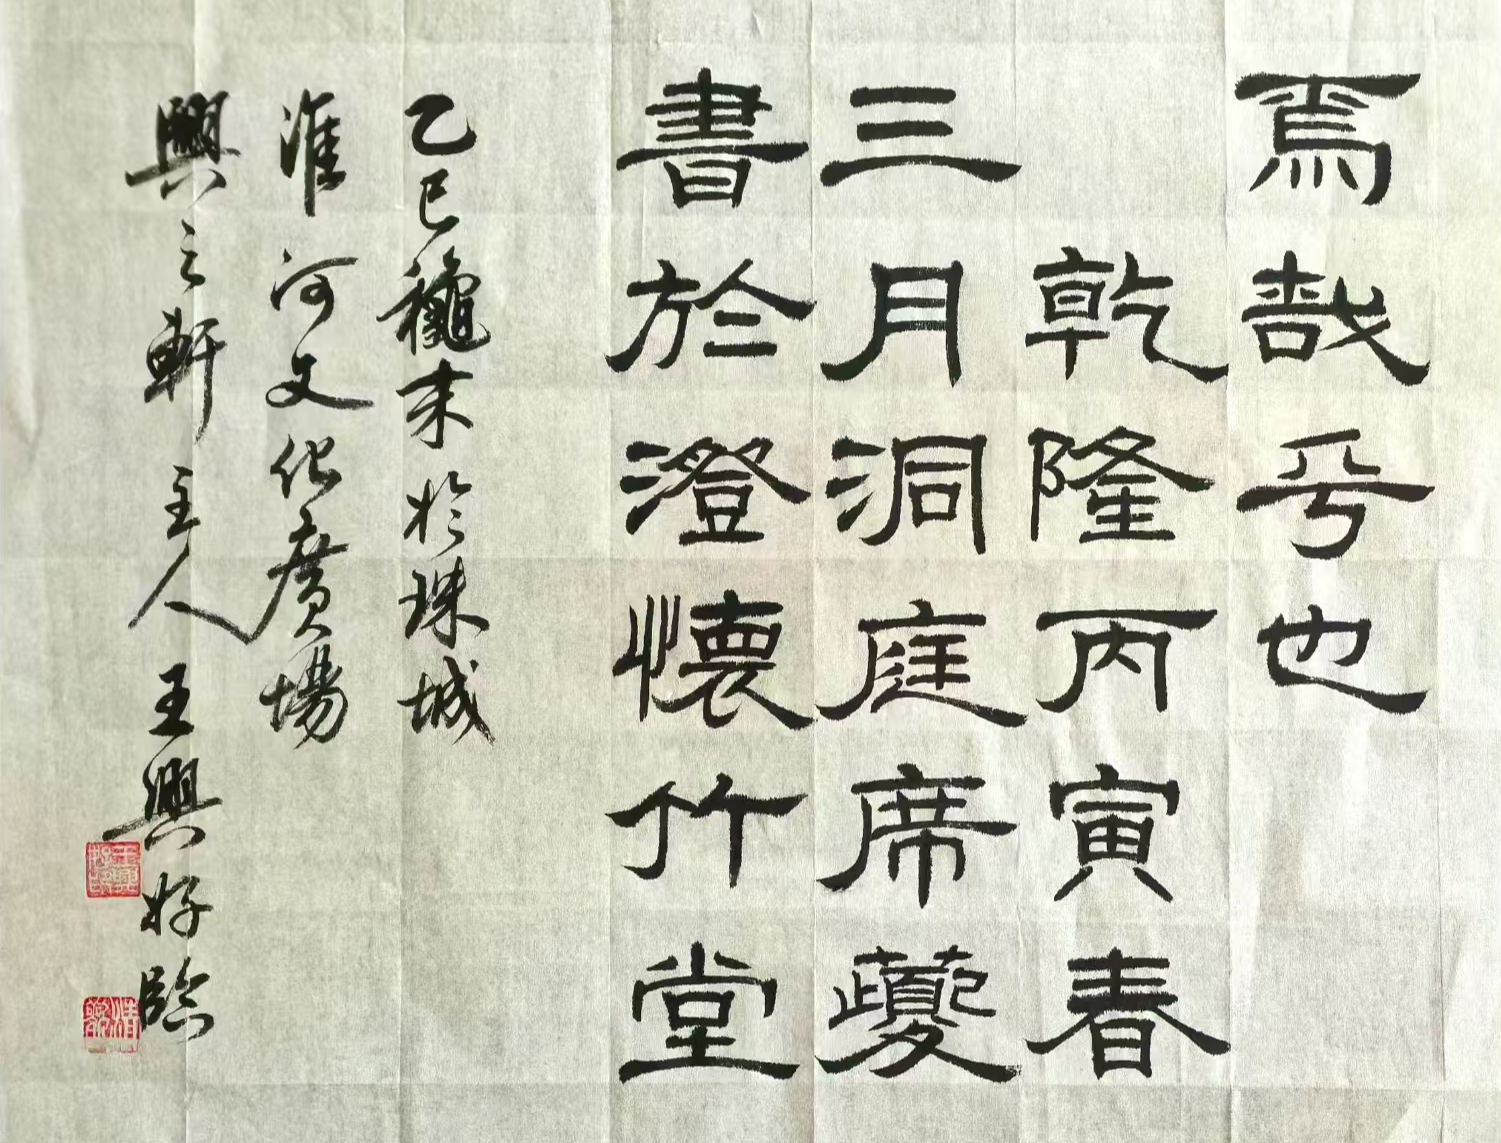 焉哉乎也
乾隆丙寅春
三月洞庭席夔
書於澄懷竹堂
乙巳龝末於珠城
淮河文化廣場
興之軒主人王興好臨